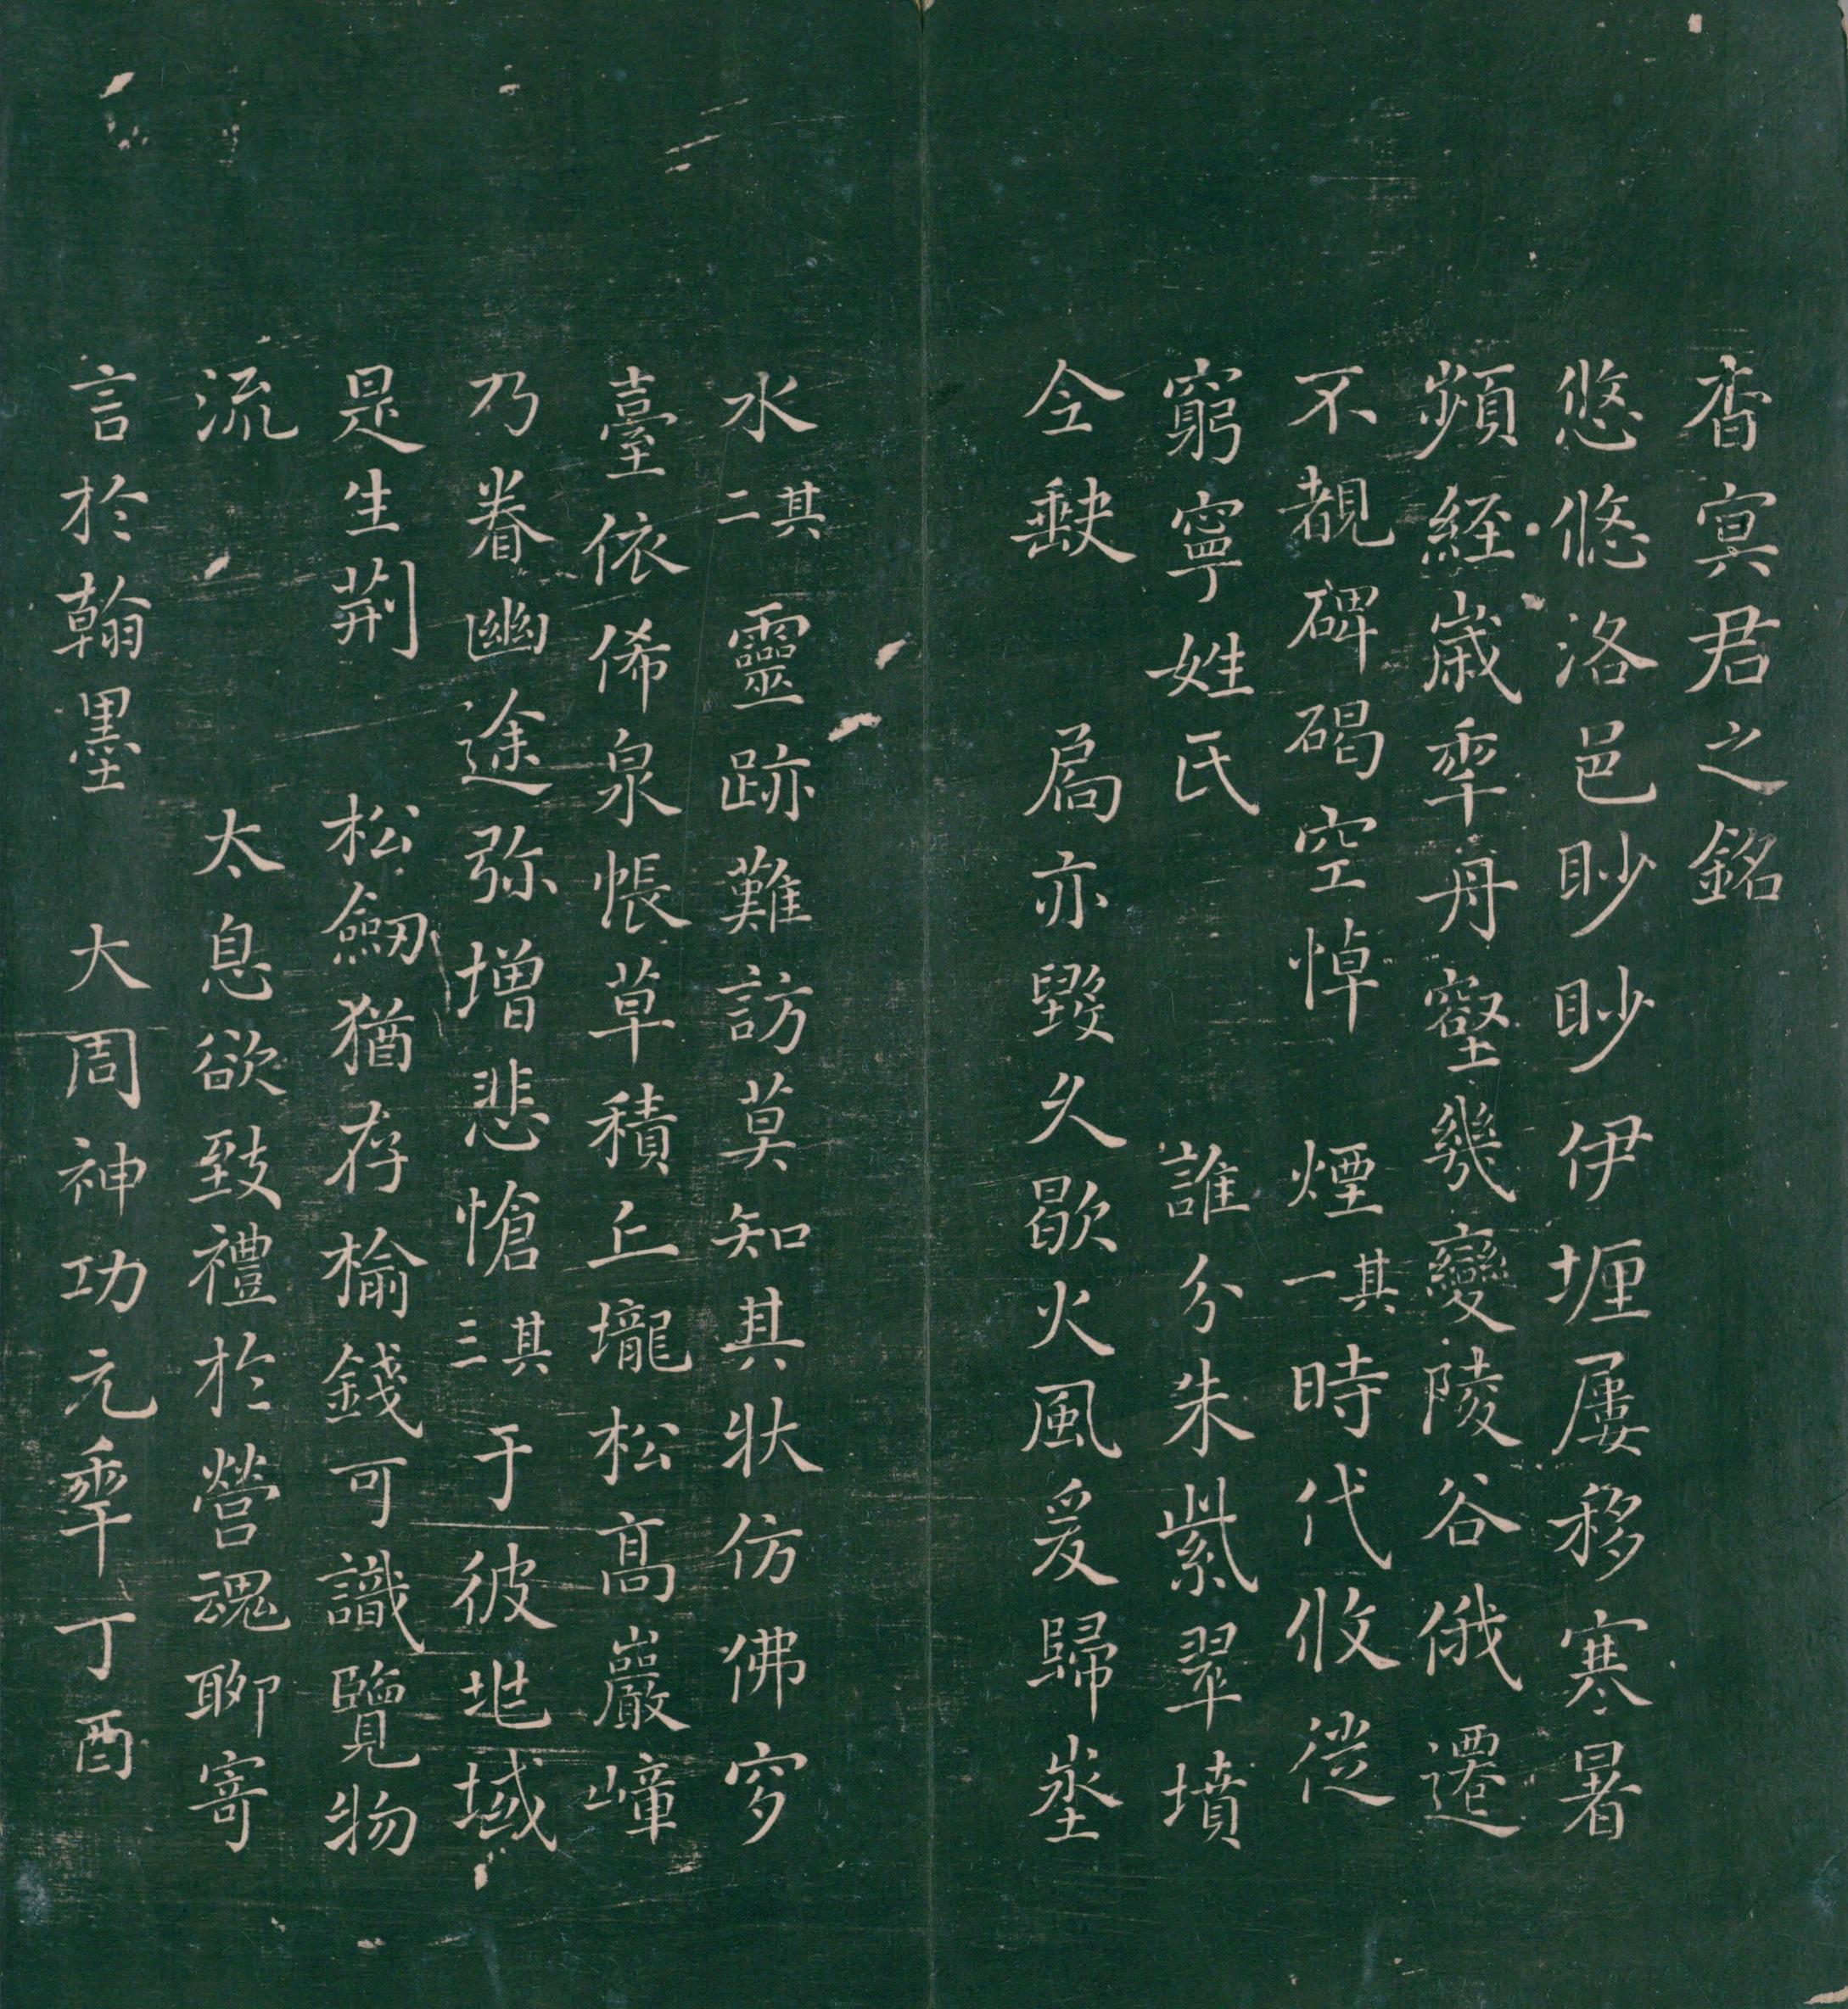 杳冥君之銘
悠悠洛邑眇眇伊壥屢移寒暑
頻經歲秊丹壑幾變陵谷俄遷
不覩碑碣空悼 煙其一時代攸徙
窮寧姓氏 誰分朱紫翠墳
今缺 扃亦毀久歇火風爰歸埊
水其二 靈跡難訪莫知其狀仿佛穸
臺依俙泉帳草積丘壠松高巖嶂
乃眷幽途弥增悲愴其三于彼垗域
是生荊 松劒猶存榆錢可識覽物
流 太息欲致禮於營魂聊寄
言於翰墨 大周神功元秊丁酉